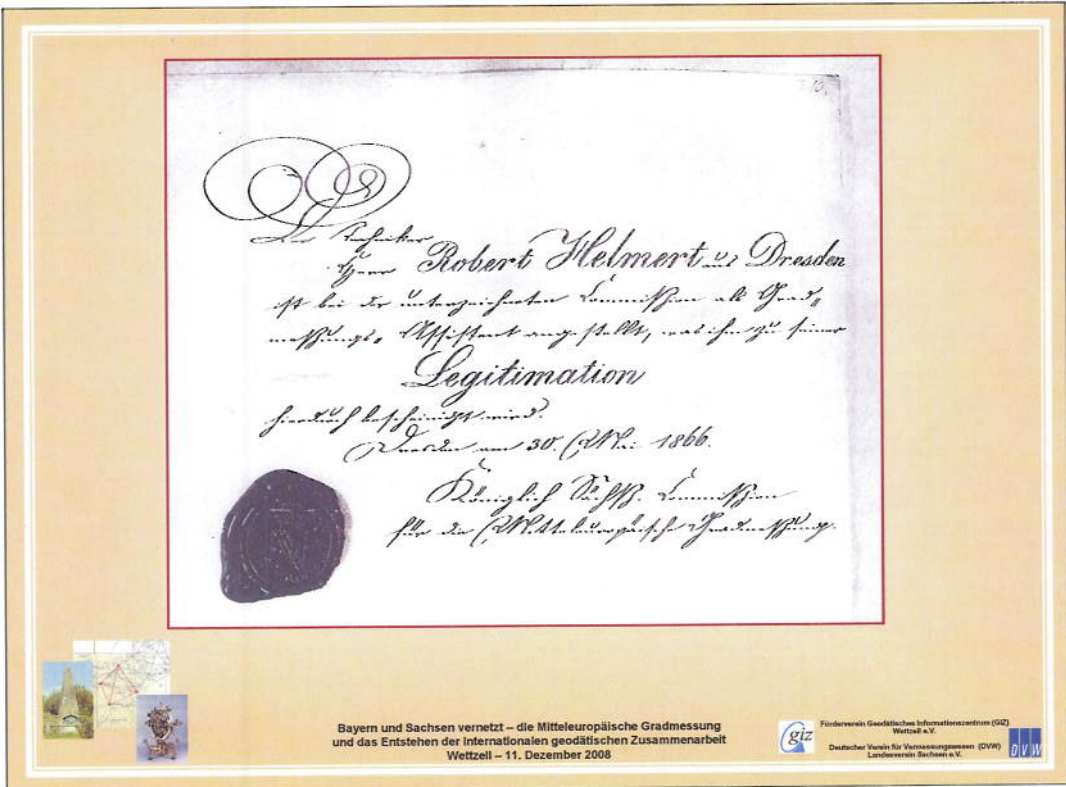 10.
Der Techniker
Herr Robert Helmert aus Dresden
ist bei der unterzeichneten Commißion als Grad„
meßungs„ Assistent angestellt, was ihm zu seiner
Legitimation
hierdurch bescheinigt wird.
Dresden am 30. Mai 1866.
Königlich Sächß. Commißion
für die Mitteleuropäische Gradmeßung.
Bayern und Sachsen vernetzt – die Mitteleuropäische Gradmessung
und das Entstehen der internationalen geodätischen Zusammenarbeit
Wettzell – 11. Dezember 2008
giz
Förderverein Geodätisches Informationszentrum (GIZ)
Wettzell e.V.
Deutscher Verein für Vermessungswesen (DVW)
Landesverein Sachsen e.V.
DVW